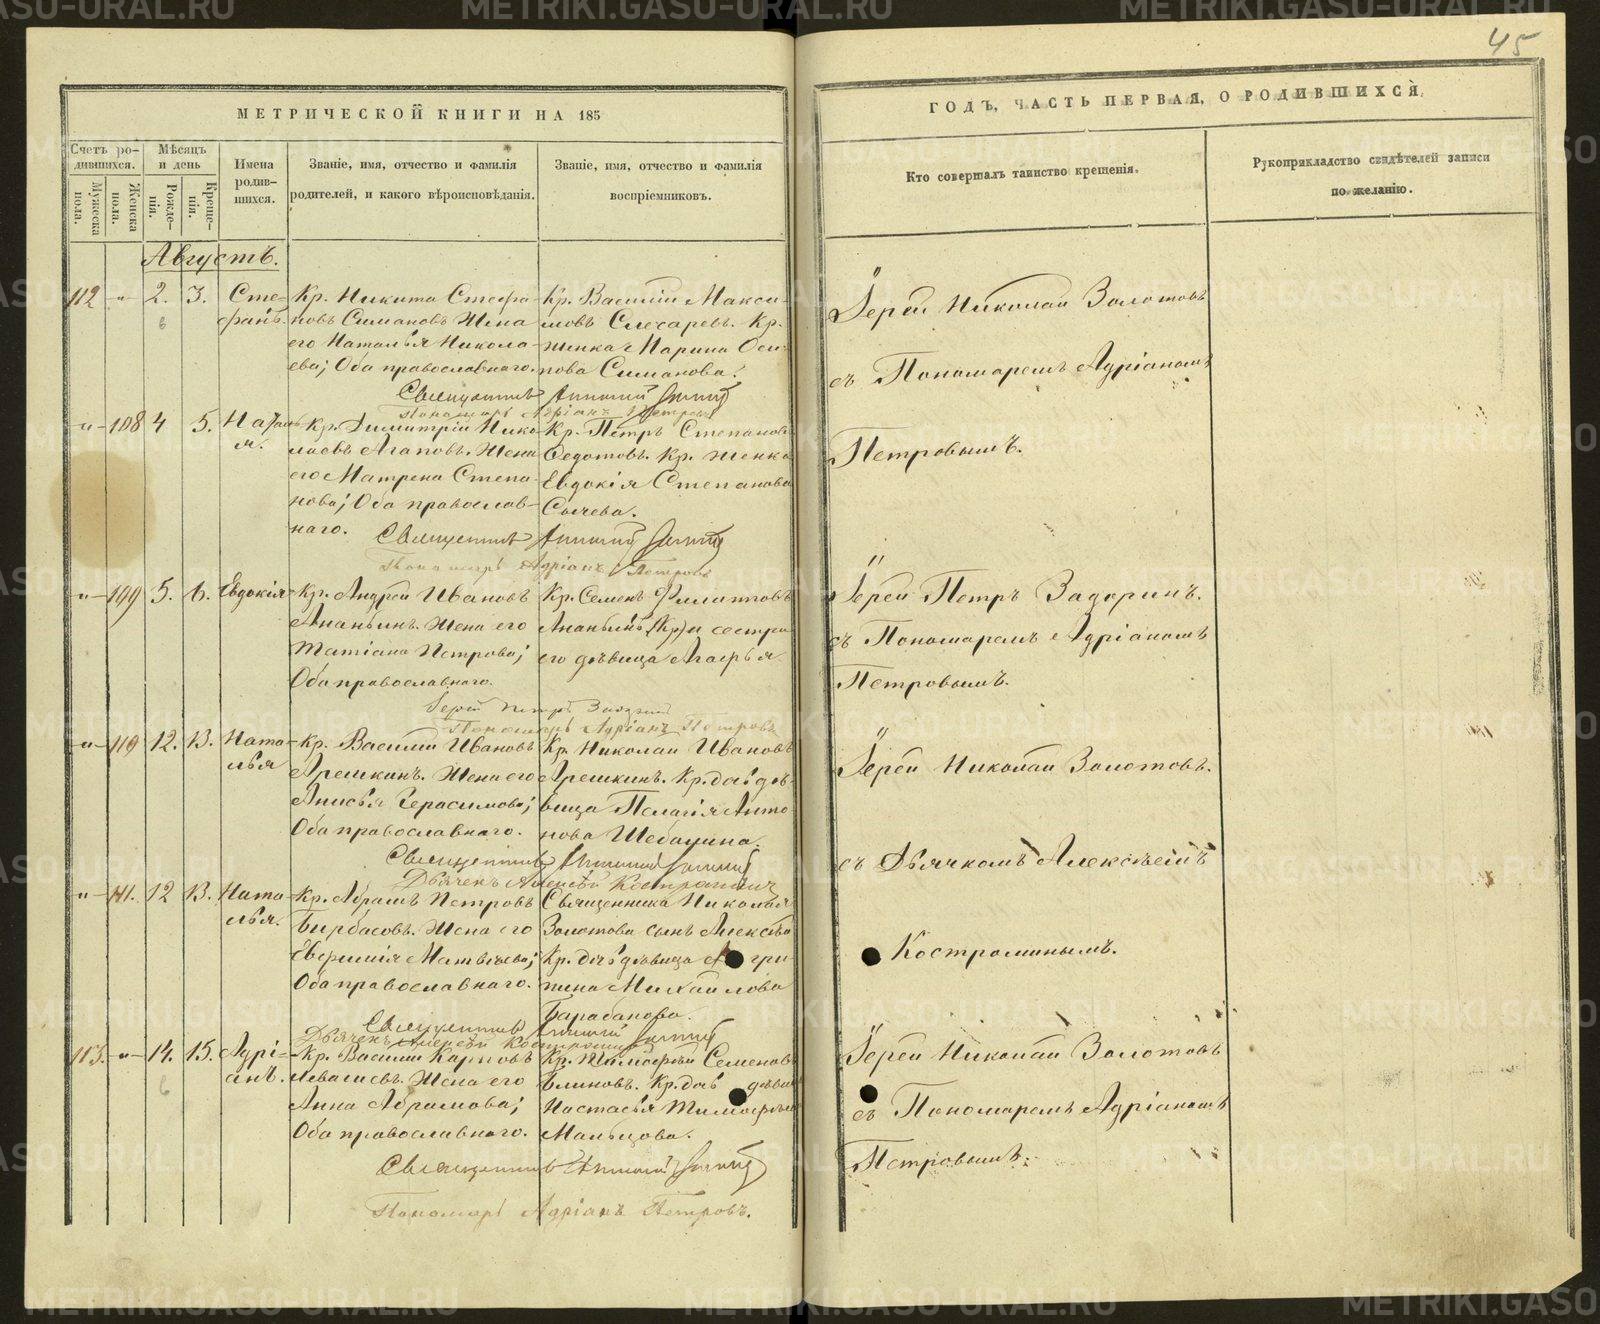 45
МЕТРИЧЕСКОЙ КНИГИ НА 185
ГОДЪ, ЧАСТЬ ПЕРВАЯ, О РОДИВШИХСЯ.
Счетъ родившихся.
Мужеска пола.
Женска пола.
Мѣсяцъ и день
Рожденія.
Крещенія.
Имена родившихся.
Званіе, имя, отчество и фамилія
родителей, и какого вѣроисповѣданія.
Званіе, имя, отчество и фамилія
воспріемниковъ.
Кто совершалъ таинство крещенія.
Рукоприкладство свидѣтелей записи
по желанію.
Августъ.
112 - " - 2. 3. Сте-
фанъ.
Кр. Никита Стефа-
новъ Симановъ. Жена
его Наталья Никола-
ева; Оба православнаго.
Кр. Василій Макси-
мовъ Слесаревъ. Кр.
женка Марина Оси-
пова Симанова.
Священникъ Николай Золотовъ
Пономарь Адріанъ Петровъ
Іерей Николай Золотовъ
съ Пономаремъ Адріаномъ
Петровымъ.
- " - 108 4 5.
Кр. Димитрій Нико-
лаевъ Агаповъ. Жена
его Матрена Степа-
нова; Оба православ-
наго.
Кр. Петръ Степановъ
Федотовъ. Кр. женка
Евдокія Степанова
Сычева.
Священникъ Николай Золотовъ
Пономарь Адріанъ Петровъ
- " - 109 5. 6. Евдокія
Кр. Андрей Ивановъ
Ананьинъ. Жена его
Татіана Петрова;
Оба православнаго.
Кр. Семенъ Филиповъ
Ананьинъ (Кр) и сестра
его дѣвица Агафья
Іерей Петръ Задоринъ
Пономарь Адріанъ Петровъ
Іерей Петръ Задоринъ.
съ Пономаремъ Адріаномъ
Петровымъ.
- " - 110 12. 13. Ната-
лья
Кр. Василій Ивановъ
Арешкинъ. Жена его
Анисья Герасимова;
Оба православнаго.
Кр. Николай Ивановъ
Арешкинъ. Кр. дочь дѣ-
вица Пелагія Анто-
нова
Священникъ Николай Золотовъ
Дьячекъ Алексѣй Костроминъ
Іерей Николай Золотовъ.
съ Дьячкомъ Алексѣемъ
Костроминымъ.
- " - 111. 12 13. Ната-
лья.
Кр. Абрамъ Петровъ
Бирбасовъ. Жена его
Евфимія Матвѣева;
Оба православнаго.
Священника Николая
Золотова сынъ Алексѣй
Кр. дочь дѣвица Агри-
пина Михайлова
Барабанова.
Священникъ Николай Золотовъ
Дьячекъ Алексѣй Костроминъ
113. - " - 14. 15. Адрі-
анъ.
Кр. Василій Карповъ
Жена его
Анна Абрамова;
Оба православнаго.
Кр. Тимофей Семеновъ
Блиновъ. Кр. дочь дѣвица
Настасья Тимофѣева
Мальцова.
Священникъ Николай Золотовъ
Пономарь Адріанъ Петровъ.
Іерей Николай Золотовъ
съ Пономаремъ Адріаномъ
Петровымъ.
METRIKI.GASO-URAL.RU